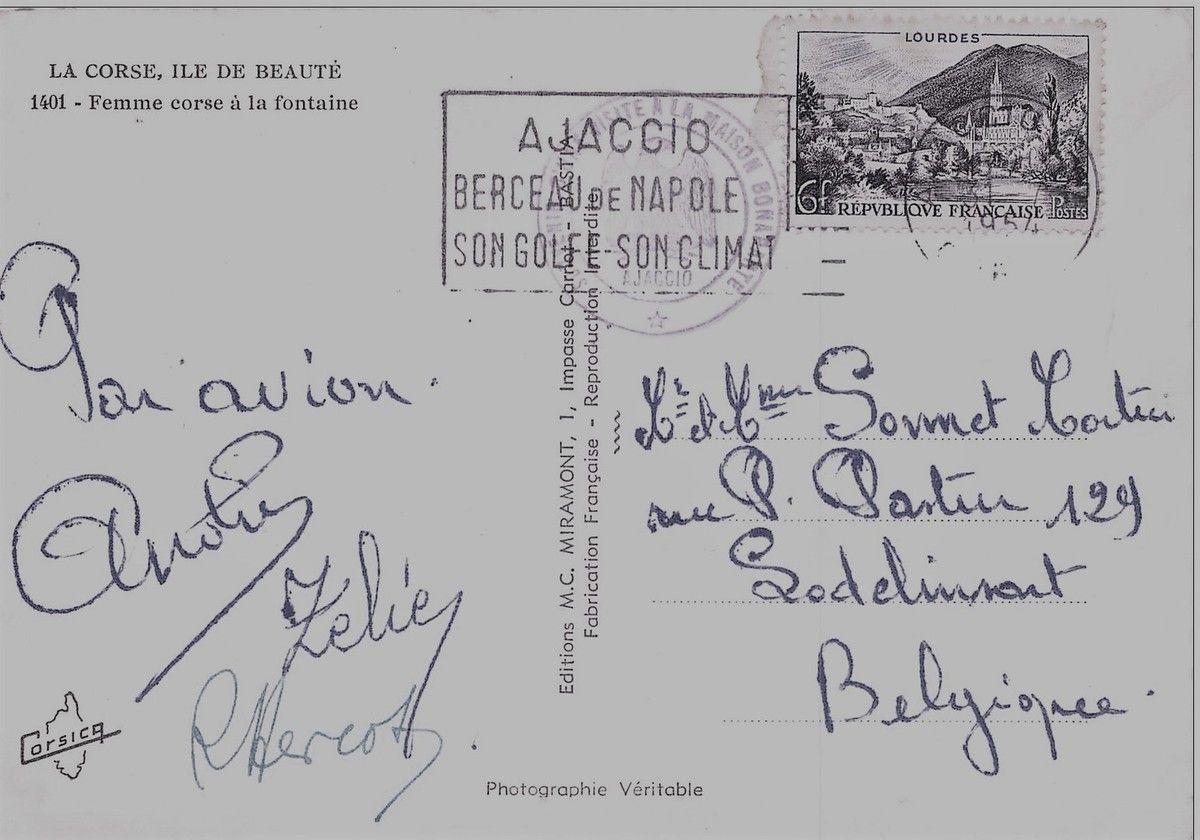 LA CORSE, ILE DE BEAUTÉ
1401 - Femme corse à la fontaine
LOURDES
6f RÉPVBLIQUE FRANÇAISE POSTES
AJACCIO
BERCEAU DE NAPOLE
SON GOLFE - SON CLIMAT
VISITE A LA MAISON BONAPARTE
AJACCIO
Par avion.
Zélie
Corsica
Editions M.C. MIRAMONT, 1, Impasse Carnot - BASTIA
Fabrication Française - Reproduction Interdite
Mr et Mme Sonnet
rue P. Pasteur 129
Lodelinsart
Belgique.
Photographie Véritable